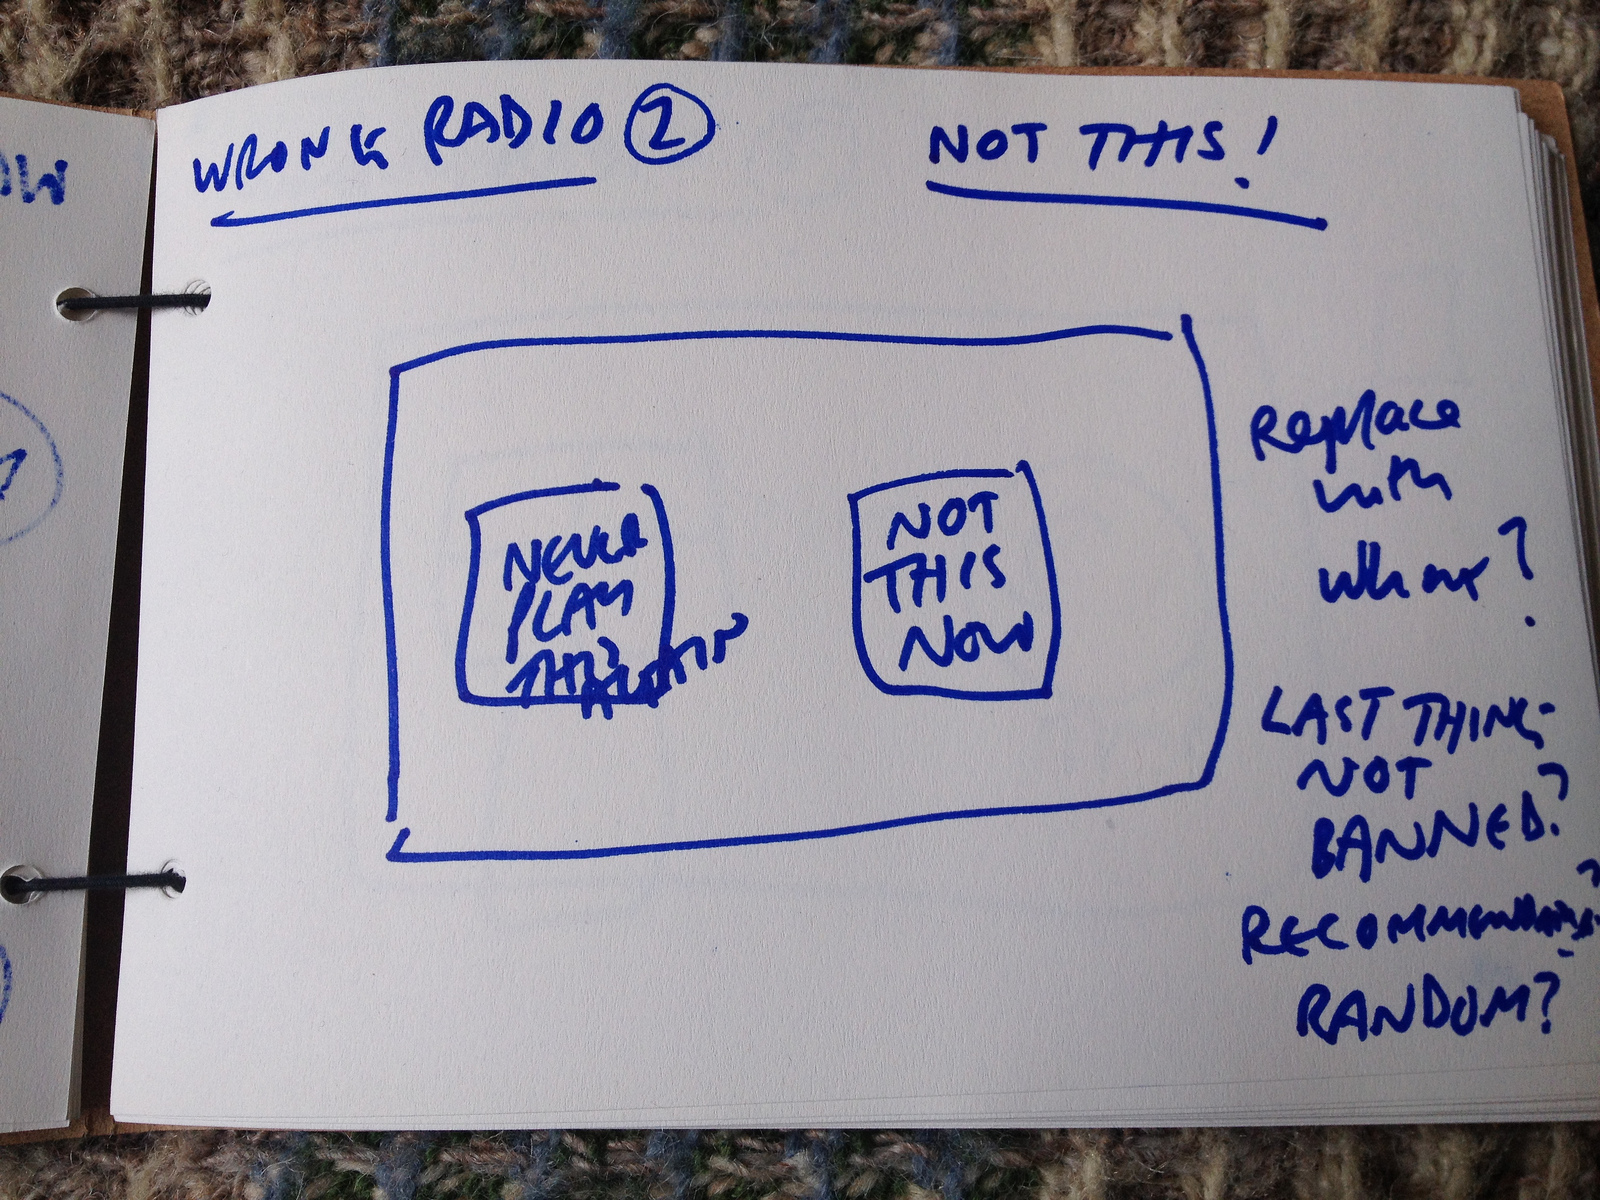 OW
WRONG RADIO 2
NOT THIS!
NEVER
PLAY
THIS
AGAIN
NOT
THIS
NOW
Replace
with
what?
LAST THING
NOT
BANNED?
RECOMMENDATIONS?
RANDOM?